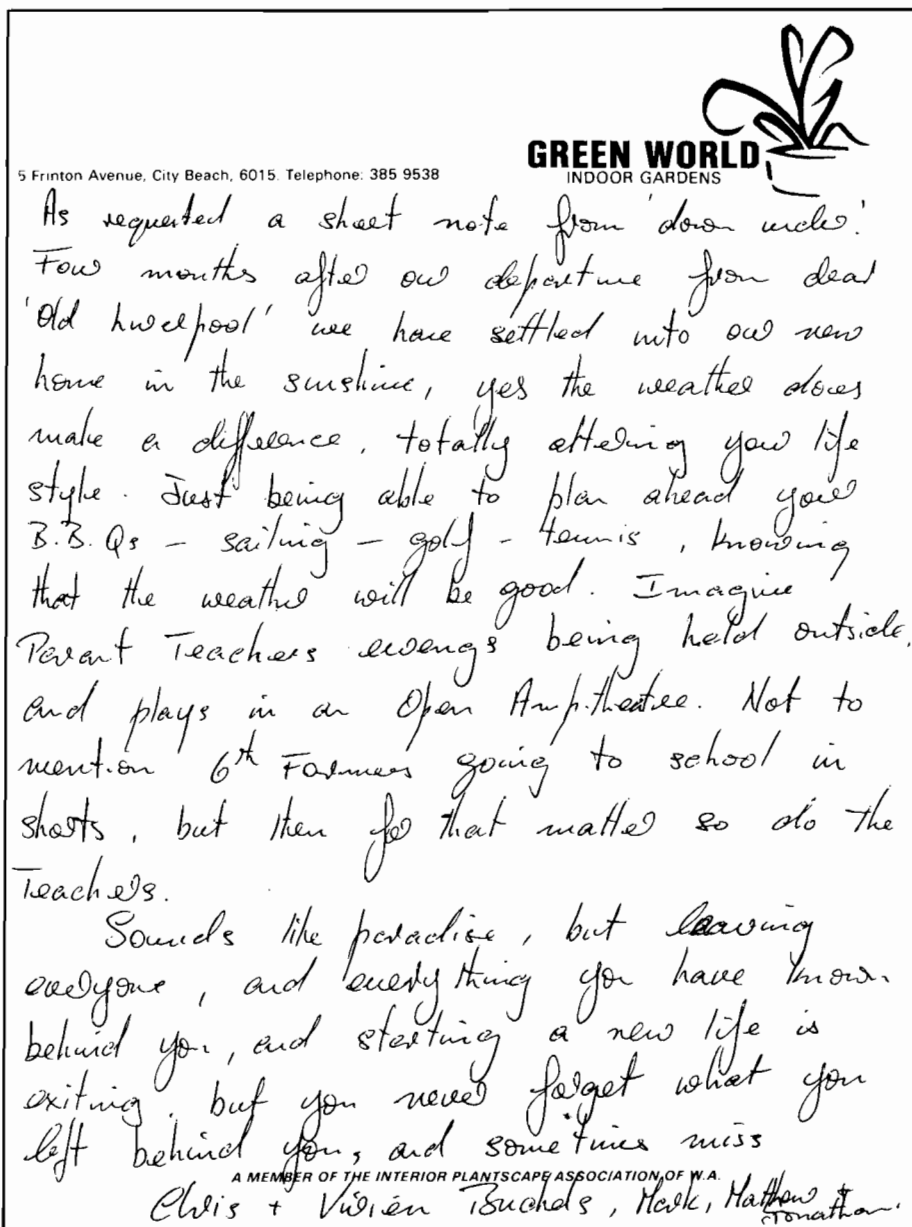 GREEN WORLD
INDOOR GARDENS
5 Frinton Avenue, City Beach, 6015. Telephone: 385 9538
As requested a short note from 'down under'.
Four months after our departure from dear
'Old Liverpool' we have settled into our new
home in the sunshine, yes the weather does
make a difference, totally altering your life
style. Just being able to plan ahead your
B.B.Qs - sailing - golf - tennis, knowing
that the weather will be good. Imagine
Parent Teachers evengs being held outside,
and plays in an Open Amp.theatre. Not to
mention 6th Formers going to school in
shorts, but then for that matter so do the
Teachers.
Sounds like paradise, but leaving
everyone, and everything you have known
behind you, and starting a new life is
exiting, but you never forget what you
left behind you, and sometimes miss
A MEMBER OF THE INTERIOR PLANTSCAPE ASSOCIATION OF W.A.
Chris + Vivien, Mark, Mathew +
Jonathan.